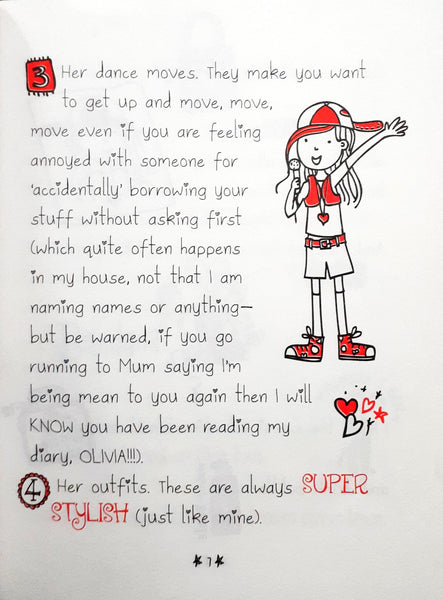 3 Her dance moves. They make you want
to get up and move, move,
move even if you are feeling
annoyed with someone for
'accidentally' borrowing your
stuff without asking first
(which quite often happens
in my house, not that I am
naming names or anything—
but be warned, if you go
running to Mum saying I'm
being mean to you again then I will
KNOW you have been reading my
diary, OLIVIA!!!).
4 Her outfits. These are always SUPER
STYLISH (just like mine).
7